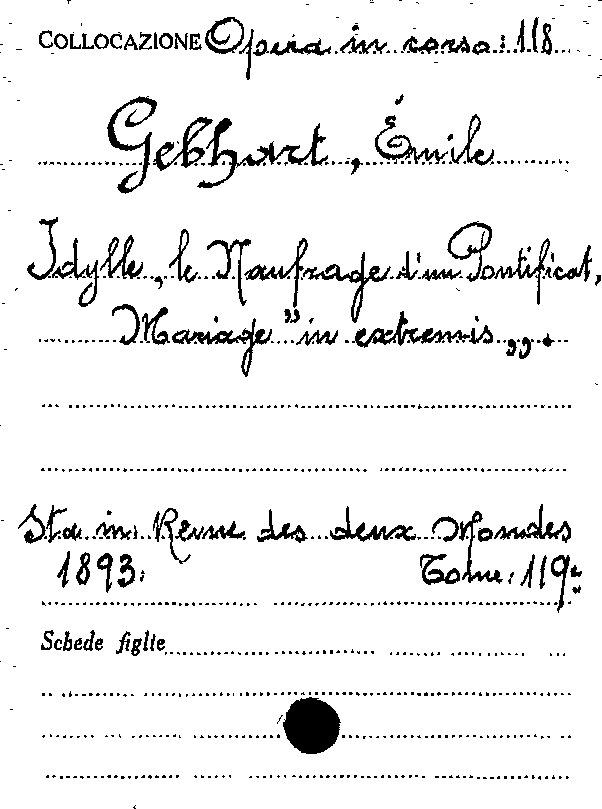 COLLOCAZIONE Opera in corso: 118
Gebhart, Émile
Idylle, le Naufrage d'un Pontificat,
Mariage "in extremis„.
Sta in: Revue des deux Mondes
1893. Tome: 119:
Schede figlie